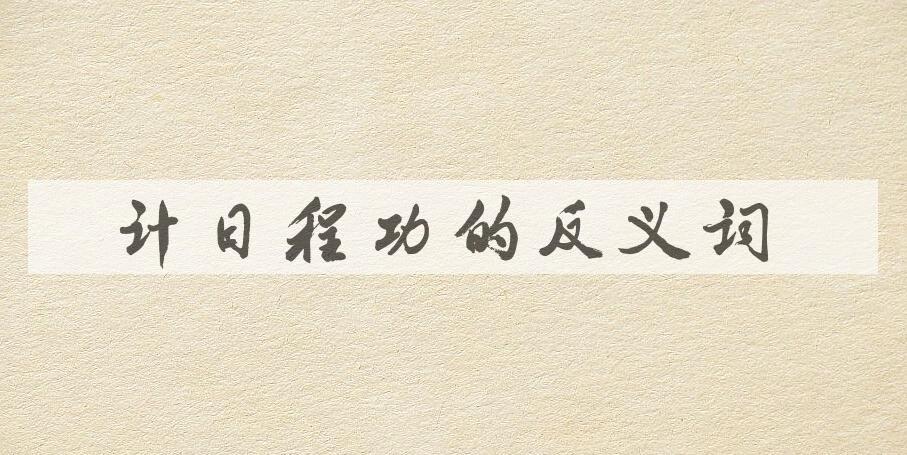 计日程功的反义词